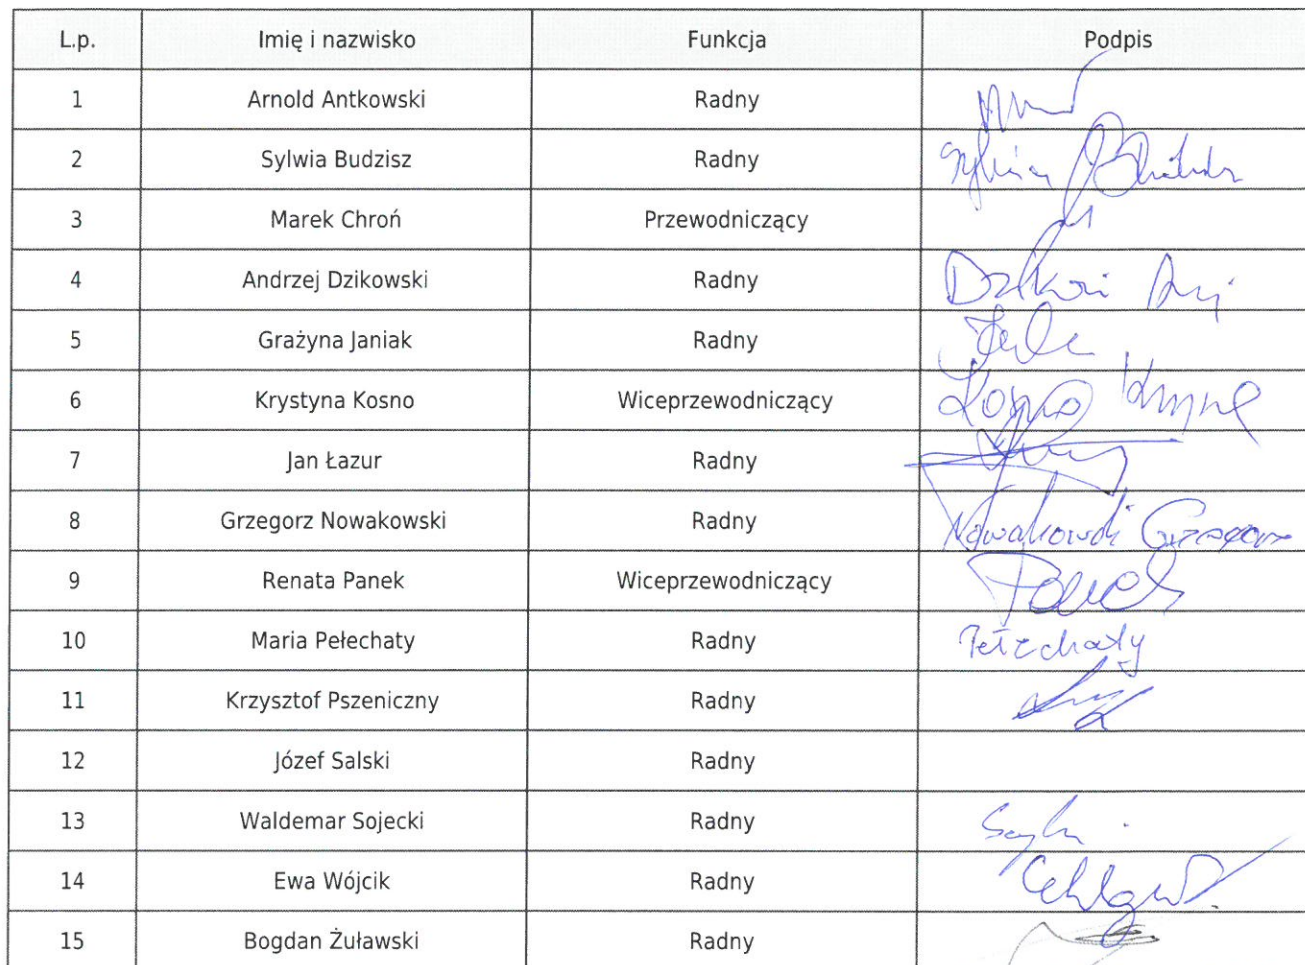 L.p. Imię i nazwisko Funkcja Podpis
1 Arnold Antkowski Radny
2 Sylwia Budzisz Radny Sylwia
3 Marek Chroń Przewodniczący
4 Andrzej Dzikowski Radny
5 Grażyna Janiak Radny
6 Krystyna Kosno Wiceprzewodniczący Kosno
7 Jan Łazur Radny
8 Grzegorz Nowakowski Radny Nowakowski Grzegorz
9 Renata Panek Wiceprzewodniczący Panek
10 Maria Pełechaty Radny Pełechaty
11 Krzysztof Pszeniczny Radny
12 Józef Salski Radny
13 Waldemar Sojecki Radny
14 Ewa Wójcik Radny
15 Bogdan Żuławski Radny